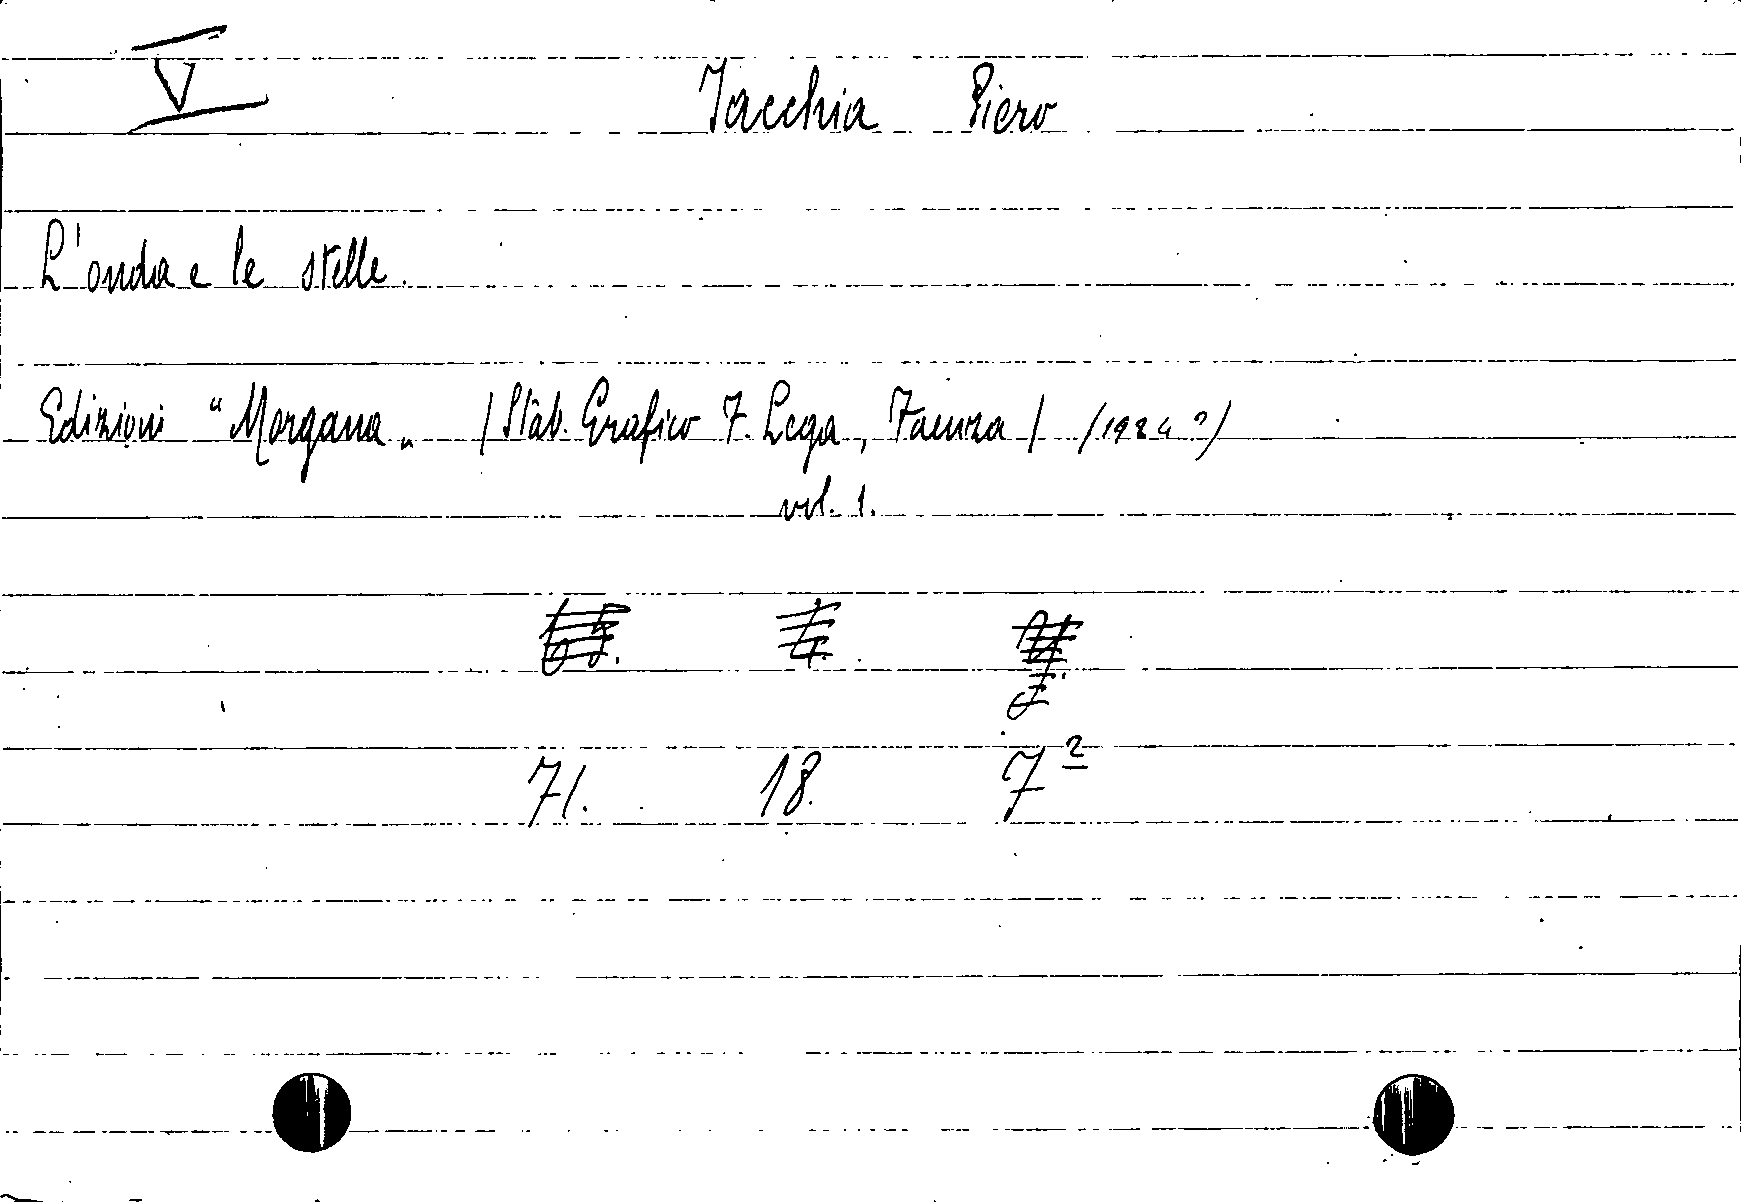 V
Jacchia Piero
L'onda e le stelle.
Edizioni "Morgana" /Stab. Grafico F. Lega, Faenza/ (1924?)
vol. 1.
71. 18. 7²